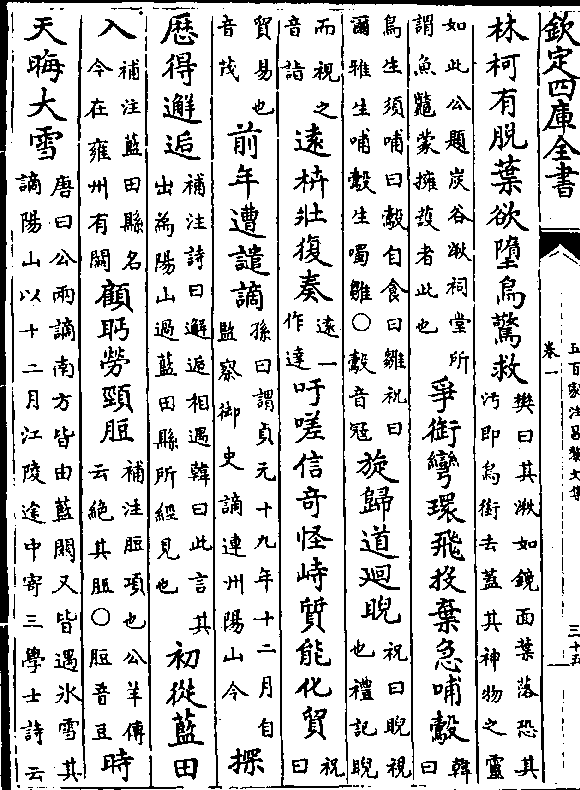 欽定四庫全書
五百家注昌黎文集
卷一
三十五
林柯有脫葉欲墮鳥驚救
樊曰其湫如鏡面葉落恐其
汚即鳥銜去蓋其神物之靈
如此公題炭谷湫祠堂所
謂魚鼈蒙擁護者此也
爭銜彎環飛投棄急哺鷇
韓
曰
鳥生須哺曰鷇自食曰雛祝曰
爾雅生哺鷇生噣雛○鷇音冦
旋歸道廻睨
祝曰睨視
也禮記睨
而視之
音詣
遠枿壯復奏
遠一
作達
吁嗟信奇怪峙質能化貿
祝
曰
貿易也
音茂
前年遭譴謫
孫曰謂貞元十九年十二月自
監察御史謫連州陽山令
探
歴得邂逅
補注詩曰邂逅相遇韓曰此言其
出為陽山過藍田縣所經見也
初從藍田
入
補注藍田縣名
今在雍州有闗
顧眄勞頸脰
補注脰項也公羊傳
云絶其脰○脰音豆
時
天晦大雪
唐曰公兩謫南方皆由藍闗又皆遇氷雪其
謫陽山以十二月江陵途中寄三學士詩云